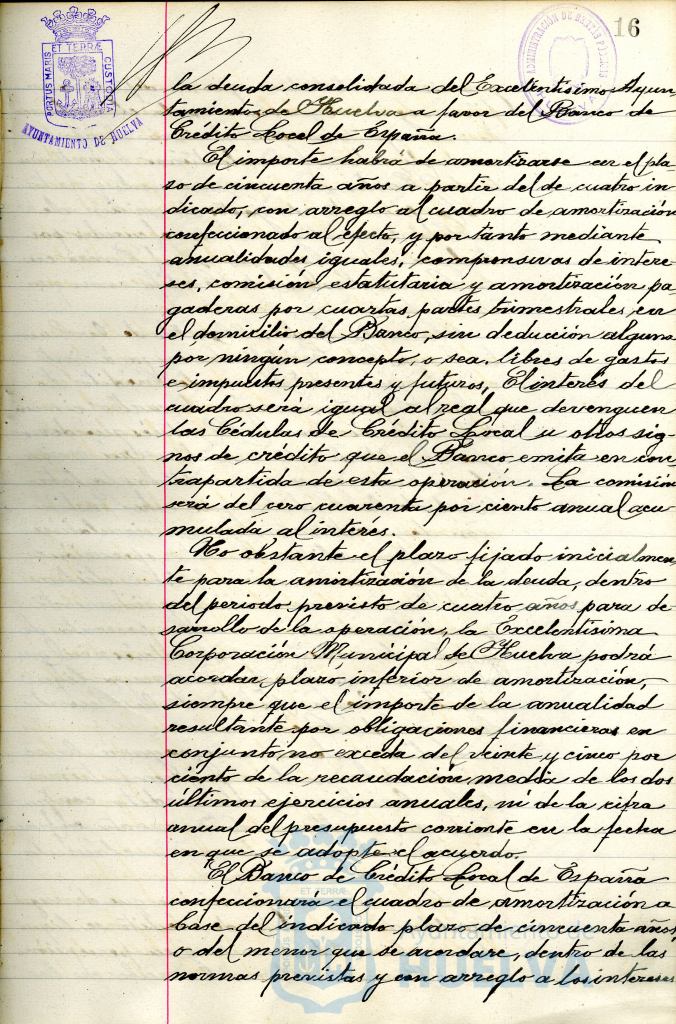 16
ET TERRÆ
PORTUS MARIS
CUSTODIA
AYUNTAMIENTO DE HUELVA
ADMINISTRACIÓN DE
la deuda consolidada del Excelentísimo Ayun
tamiento de Huelva a favor del Banco de
Crédito Local de España.
El importe habrá de amortizarse en el pla-
zo de cincuenta años a partir del de cuatro in
dicado, con arreglo al cuadro de amortización
confeccionado al efecto, y por tanto mediante
anualidades iguales, comprensivas de intere-
ses, comisión estatutaria y amortización pa-
gaderas por cuartas partes trimestrales, en
el domicilio del Banco, sin deducción alguna
por ningún concepto, o sea, libres de gastos
e impuestos presentes y futuros. El interés del
cuadro será igual al real que devenguen
las Cédulas de Crédito Local u otros sig-
nos de crédito que el Banco emita en con
trapartida de esta operación. La comisión
será del cero cuarenta por ciento anual acu
mulada al interés.
No obstante el plazo fijado inicialmen
te para la amortización de la deuda, dentro
del periodo previsto de cuatro años para de-
sarrollo de la operación, la Excelentísima
Corporación Municipal de Huelva podrá
acordar plazo inferior de amortización,
siempre que el importe de la anualidad
resultante por obligaciones financieras en
conjunto, no exceda del veinte y cinco por
ciento de la recaudación media de los dos
últimos ejercicios anuales, ni de la cifra
anual del presupuesto corriente en la fecha
en que se adopte el acuerdo.
El Banco de Crédito Local de España
confeccionará el cuadro de amortización a
base del indicado plazo de cincuenta años,
o del menor que se acordare, dentro de las
normas previstas y con arreglo a los intereses
ET TERRÆ
Ayuntamiento de
HUELVA